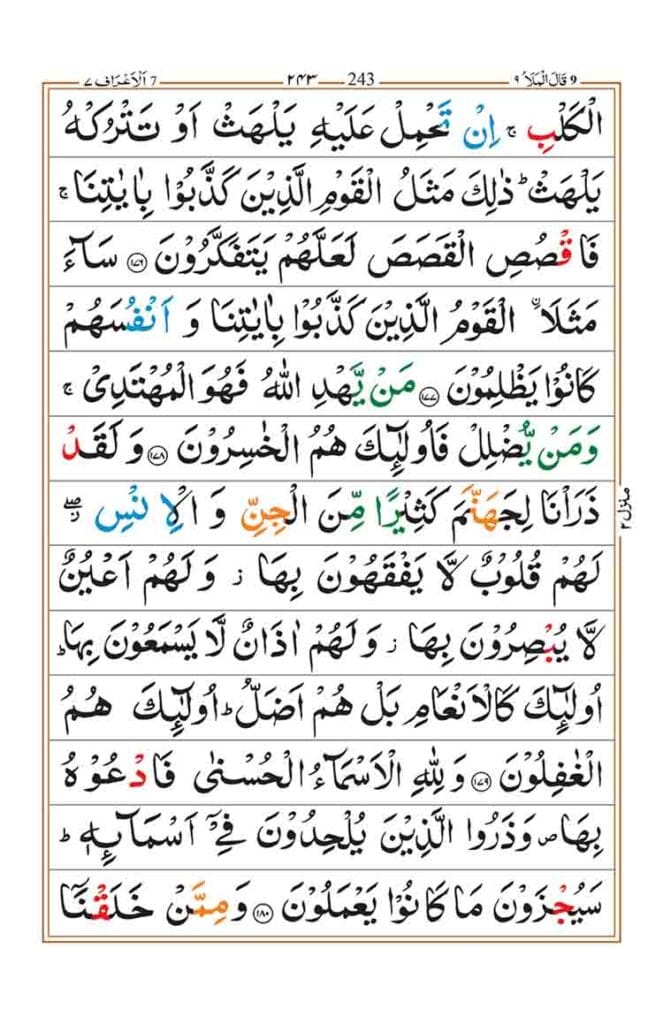 9 قَالَ الْمَلَاُ ٩ 243 ٢٤٣ 7 اَلْاَعْرَاف ٧
الْكَلْبِ ۚ اِنْ تَحْمِلْ عَلَيْهِ يَلْهَثْ اَوْ تَتْرُكْهُ
يَلْهَثْ ؕ ذٰلِكَ مَثَلُ الْقَوْمِ الَّذِيْنَ كَذَّبُوْا بِاٰيٰتِنَا ۚ
فَاقْصُصِ الْقَصَصَ لَعَلَّهُمْ يَتَفَكَّرُوْنَ ﴿۱۷۶﴾ سَآءَ
مَثَلَا ۨ الْقَوْمُ الَّذِيْنَ كَذَّبُوْا بِاٰيٰتِنَا وَ اَنْفُسَهُمْ
كَانُوْا يَظْلِمُوْنَ ﴿۱۷۷﴾ مَنْ يَّهْدِ اللّٰهُ فَهُوَ الْمُهْتَدِىْ ۚ
وَمَنْ يُّضْلِلْ فَاُولٰٓئِكَ هُمُ الْخٰسِرُوْنَ ﴿۱۷۸﴾ وَ لَقَدْ
ذَرَاْنَا لِجَهَنَّمَ كَثِيْرًا مِّنَ الْجِنِّ وَ الْاِنْسِ ۖ ز
لَهُمْ قُلُوْبٌ لَّا يَفْقَهُوْنَ بِهَا ز وَ لَهُمْ اَعْيُنٌ
لَّا يُبْصِرُوْنَ بِهَا ز وَ لَهُمْ اٰذَانٌ لَّا يَسْمَعُوْنَ بِهَا ؕ
اُولٰٓئِكَ كَالْاَنْعَامِ بَلْ هُمْ اَضَلُّ ؕ اُولٰٓئِكَ هُمُ
الْغٰفِلُوْنَ ﴿۱۷۹﴾ وَ لِلّٰهِ الْاَسْمَآءُ الْحُسْنٰى فَادْعُوْهُ
بِهَا ص وَ ذَرُوا الَّذِيْنَ يُلْحِدُوْنَ فِىْٓ اَسْمَآئِهٖ ؕ
سَيُجْزَوْنَ مَا كَانُوْا يَعْمَلُوْنَ ﴿۱۸۰﴾ وَ مِمَّنْ خَلَقْنَآ
منزل ٢